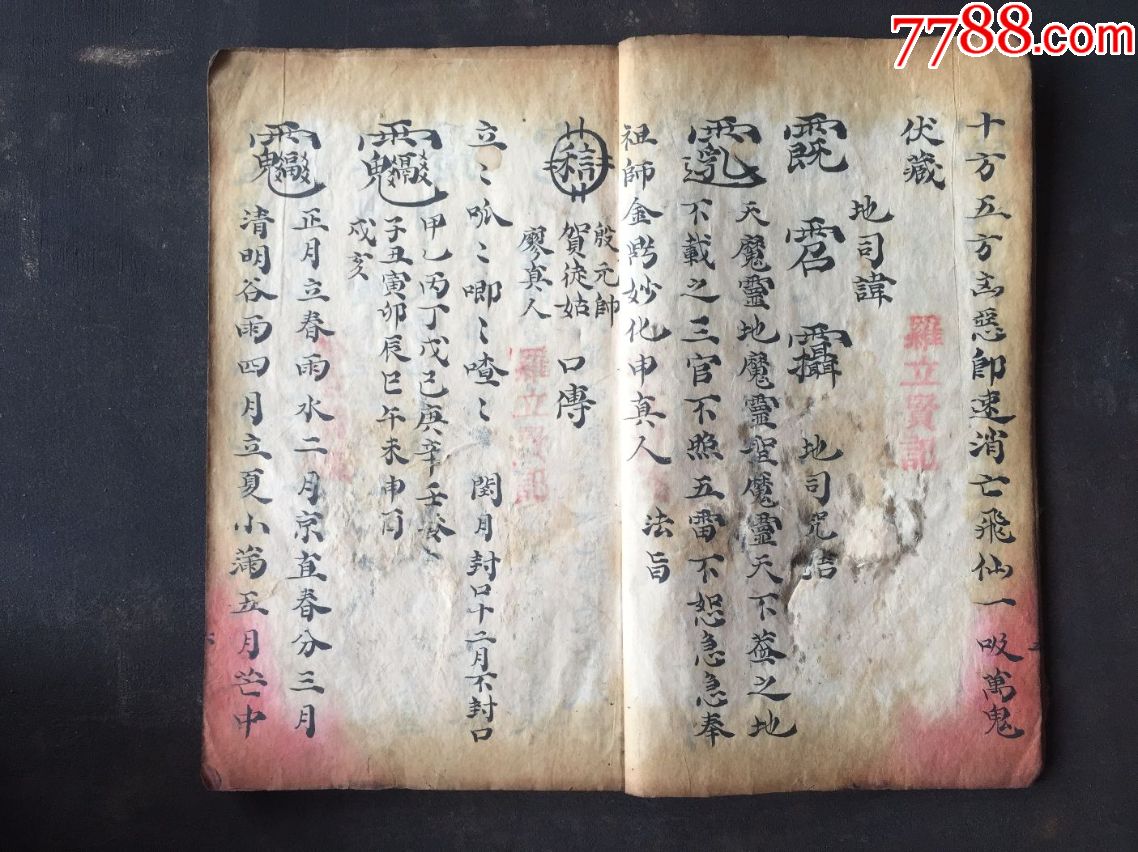 7788.com
十方五方凶惡即速消亡飛仙一吸萬鬼
伏藏
地司諱
地司咒
天魔靈地魔靈聖魔靈天不蓋之地
不載之三官不照五雷不恕急急奉
祖師金妙化申真人 法旨
殷元帥
賀徒姑 口傳
廖真人
立〻呱〻唧〻喳〻 閏月封口十二月不封口
甲乙丙丁戊己庚辛壬癸
子丑寅卯辰巳午未申酉
戍亥
正月立春雨水二月京直春分三月
清明谷雨四月立夏小满五月芒中
羅立賢